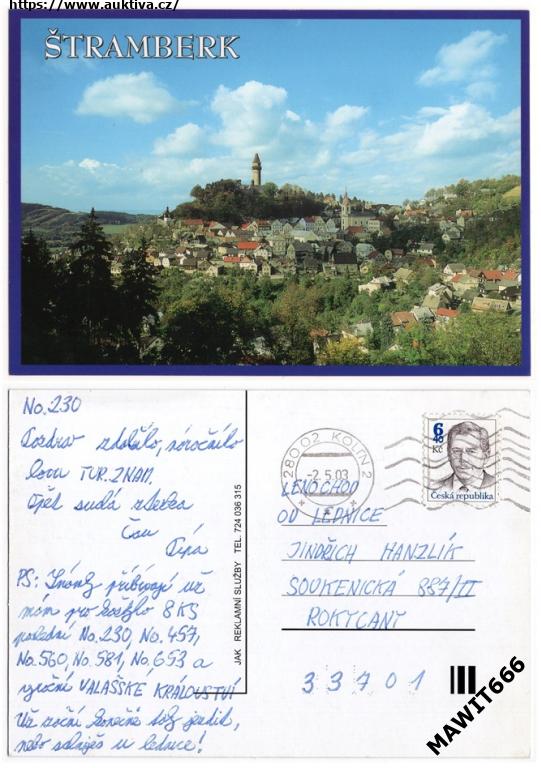 https://www.auktiva.cz/
ŠTRAMBERK
No.230
Pozdrav
lovu TUR.ZNAM.
Opět sudá
Čau
Pípa
PS: Známky přibývají už
mám pro 8 KS
No.230, No.457,
No.560, No.581, No.653 a
výroční VALAŠSKÉ KRÁLOVSTVÍ
Už konečně
nebo u lednice!
JAK REKLAMNÍ SLUŽBY TEL. 724 036 315
280 02 KOLÍN 2
-2.5.03
6
40
Kč
Česká republika
LENOCHOD
OD LEDNICE
JINDŘICH HANZLÍK
SOUKENICKÁ 887/II
ROKYCANY
33701
MAWIT666